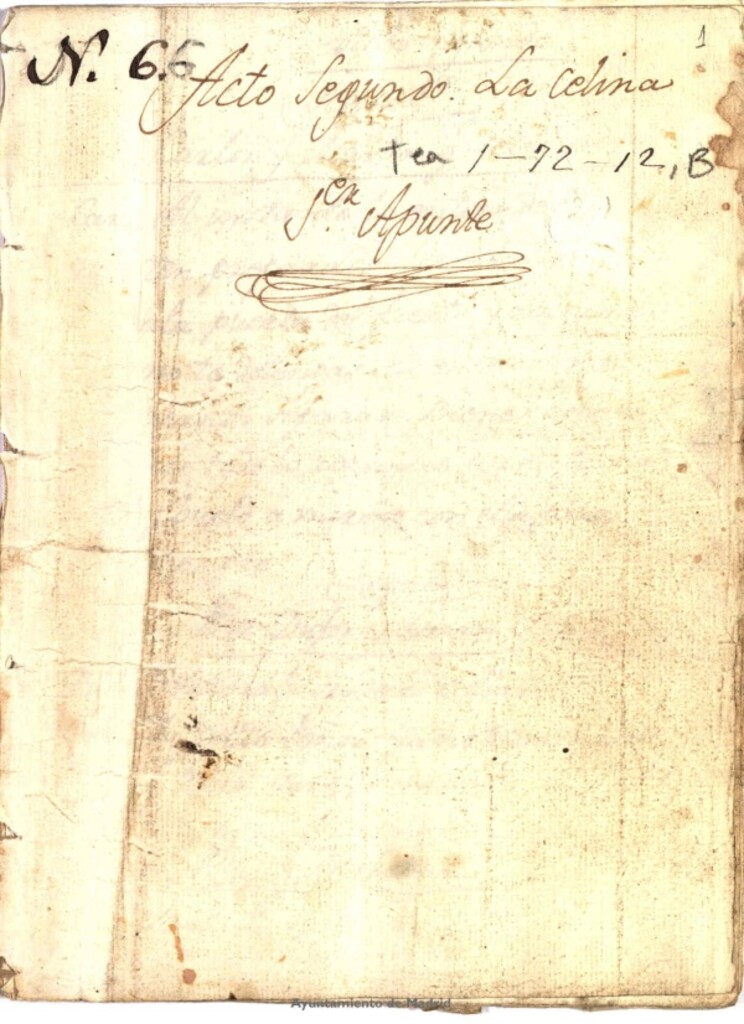 1
N. 66
Acto Segundo. La Celina
Tea 1-72-12, B
1.er Apunte
Ayuntamiento de Madrid